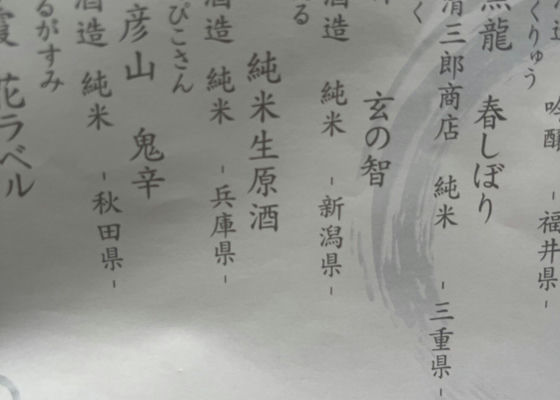 くりゅう
黒龍 春しぼり
吟醸 -福井県-
く
清三郎商店 純米 -三重県-
玄の智
る
酒造 純米 -新潟県-
純米生原酒
酒造 純米 -兵庫県-
ぴこさん
彦山 鬼辛
酒造 純米 -秋田県-
るがすみ
霞 花ラベル